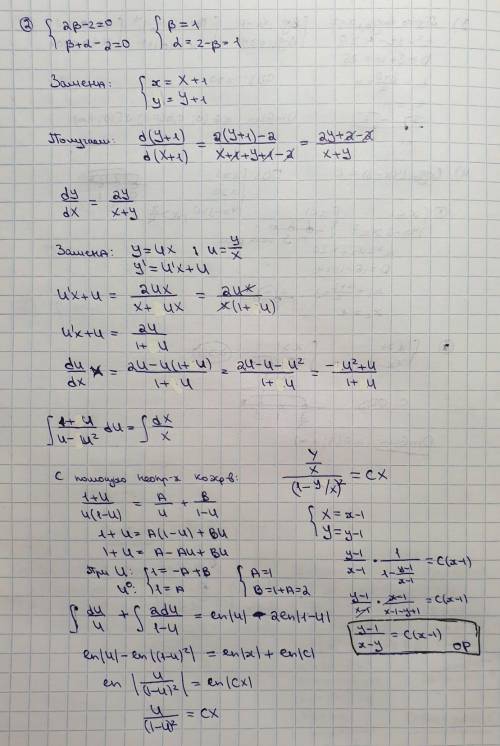 ② { 2β-2=0 { β=1
β+α-2=0 α=2-β=1
Замена: { x = X+1
y = Y+1
Получаем: d(Y+1)/d(X+1) = (2(Y+1)-2)/(X+1+Y+1-2) = (2Y+2-2)/(X+Y)
dY/dX = 2Y/(X+Y)
Замена: y=ux ; u=y/x
y'=u'x+u
u'x+u = 2ux/(x+ux) = 2ux/(x(1+u))
u'x+u = 2u/(1+u)
du/dx x = (2u-u(1+u))/(1+u) = (2u-u-u²)/(1+u) = (-u²+u)/(1+u)
∫ (1+u)/(u-u²) du = ∫ dx/x
С помощью неопр-х коэф-в:
(1+u)/(u(1-u)) = A/u + B/(1-u)
1+u = A(1-u)+Bu
1+u = A-Au+Bu
При u: { 1=-A+B { A=1
u⁰: 1=A B=1+A=2
∫ du/u + ∫ 2du/(1-u) = ln|u| - 2ln|1-u|
ln|u|-ln|(1-u)²| = ln|x|+ln|c|
ln |u/(1-u)²| = ln|cx|
u/(1-u)² = cx
(Y/X)/(1-Y/X)² = CX
{ X=x-1
Y=y-1
(y-1)/(x-1) · 1/(1-(y-1)/(x-1)) = C(x-1)
(y-1)/(x-1) · (x-1)/(x-1-y+1) = C(x-1)
(y-1)/(x-y) = C(x-1)
ОР